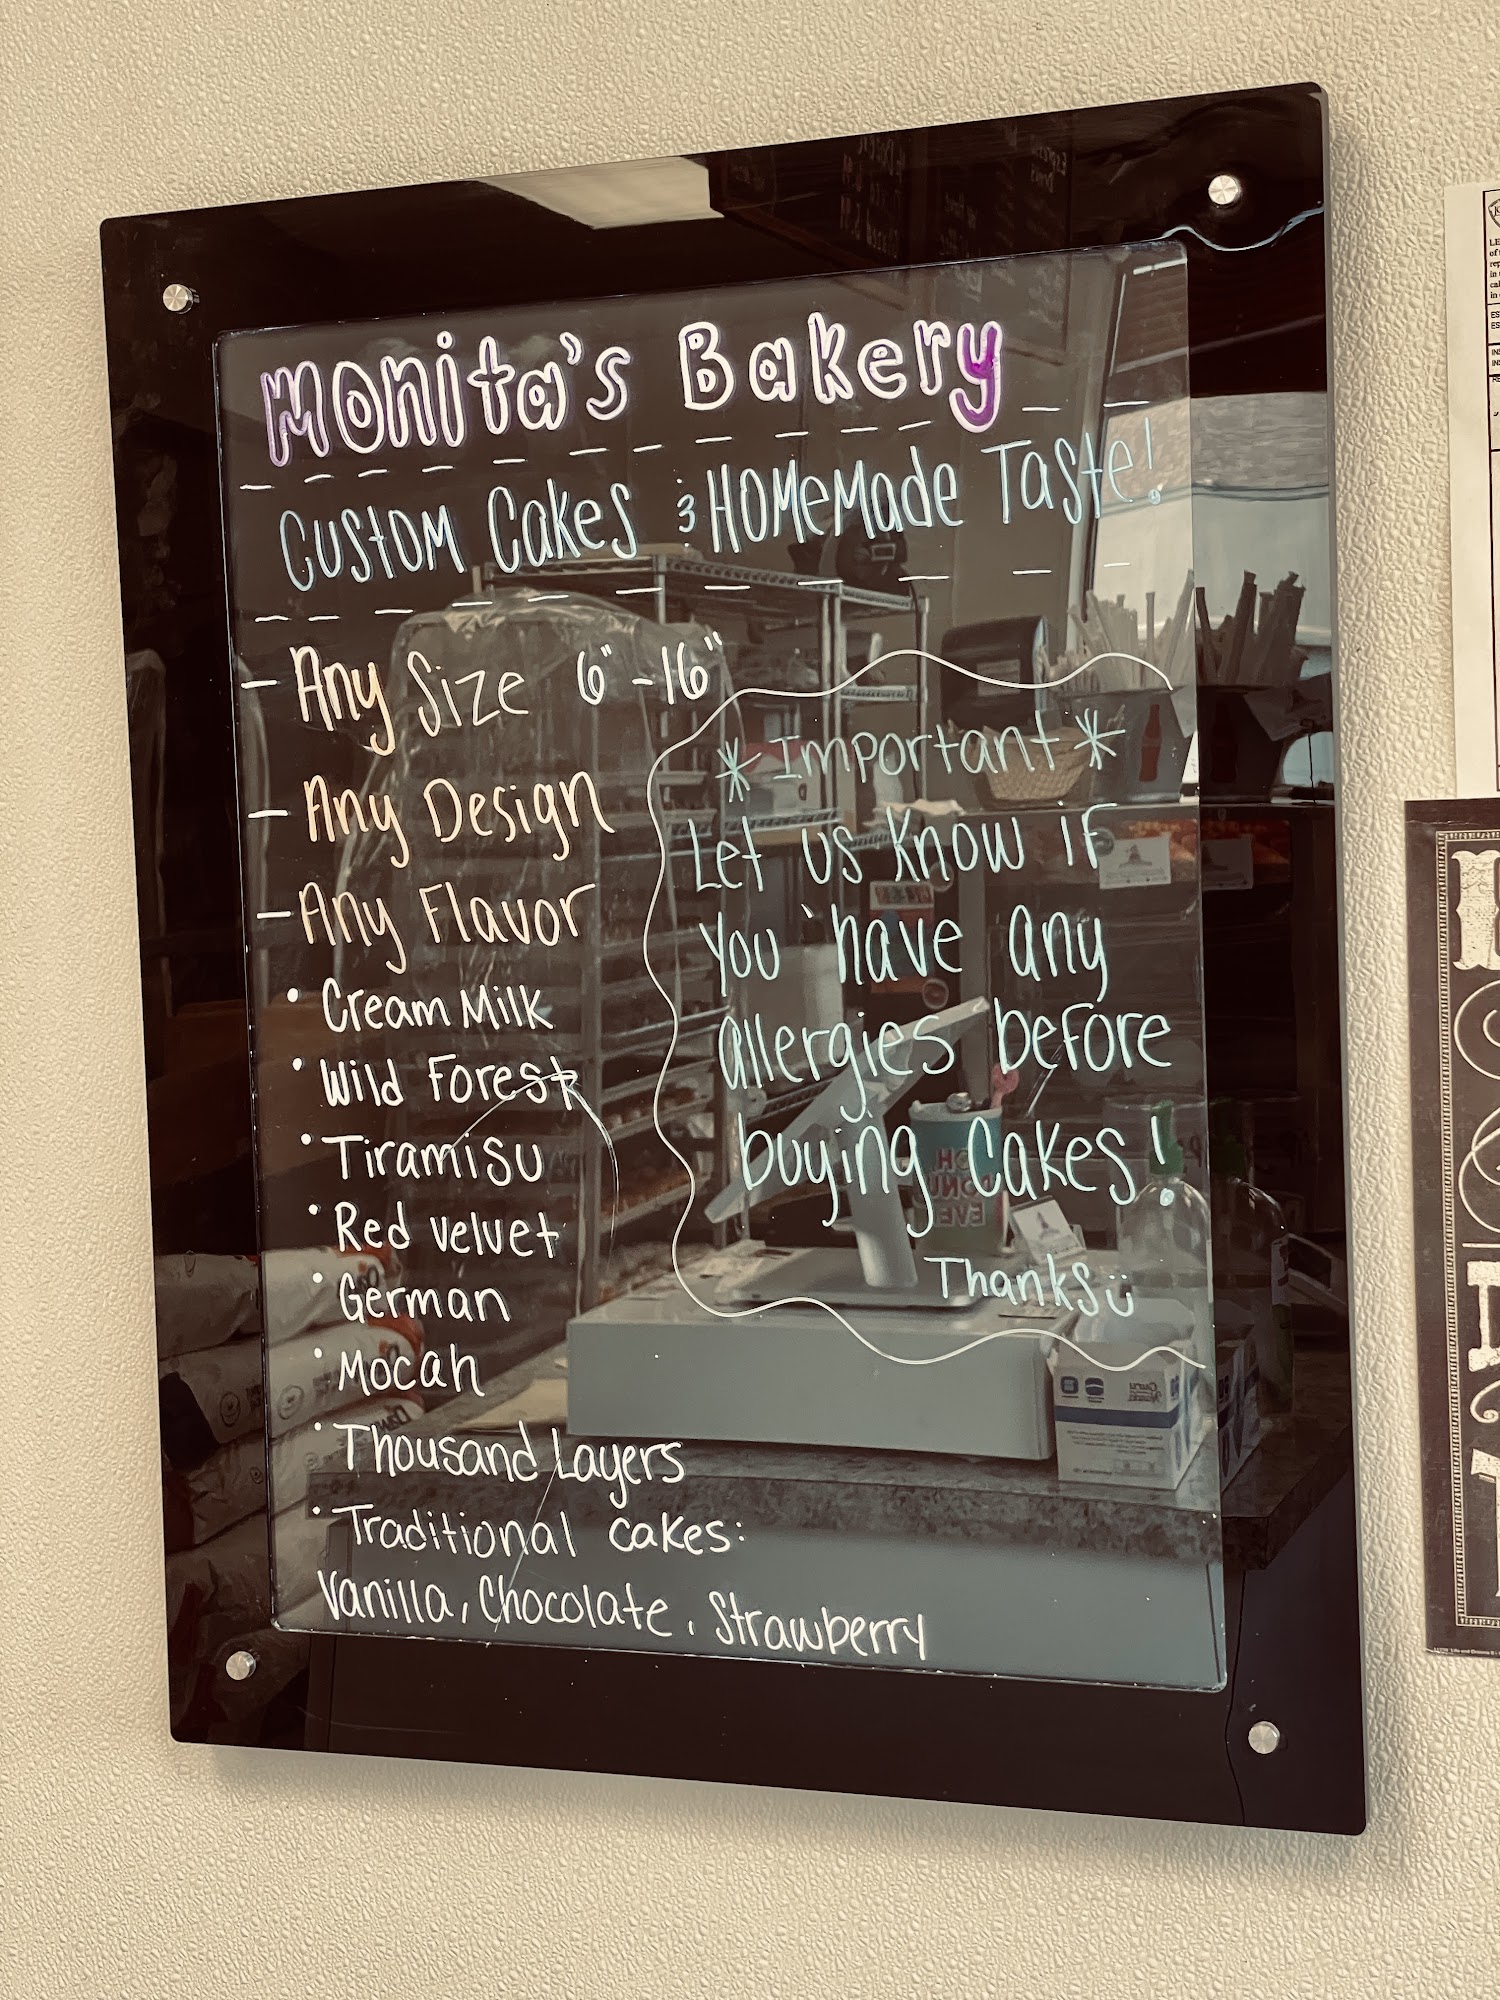 Monita's Bakery
Custom Cakes & Homemade Taste!
- Any Size 6" - 16"
- Any Design
- Any Flavor
• Cream Milk
• Wild Forest
• Tiramisu
• Red Velvet
• German
• Mocah
• Thousand Layers
• Traditional cakes:
Vanilla, Chocolate, Strawberry
* Important *
Let us know if
you have any
allergies before
buying Cakes!
Thanks ü